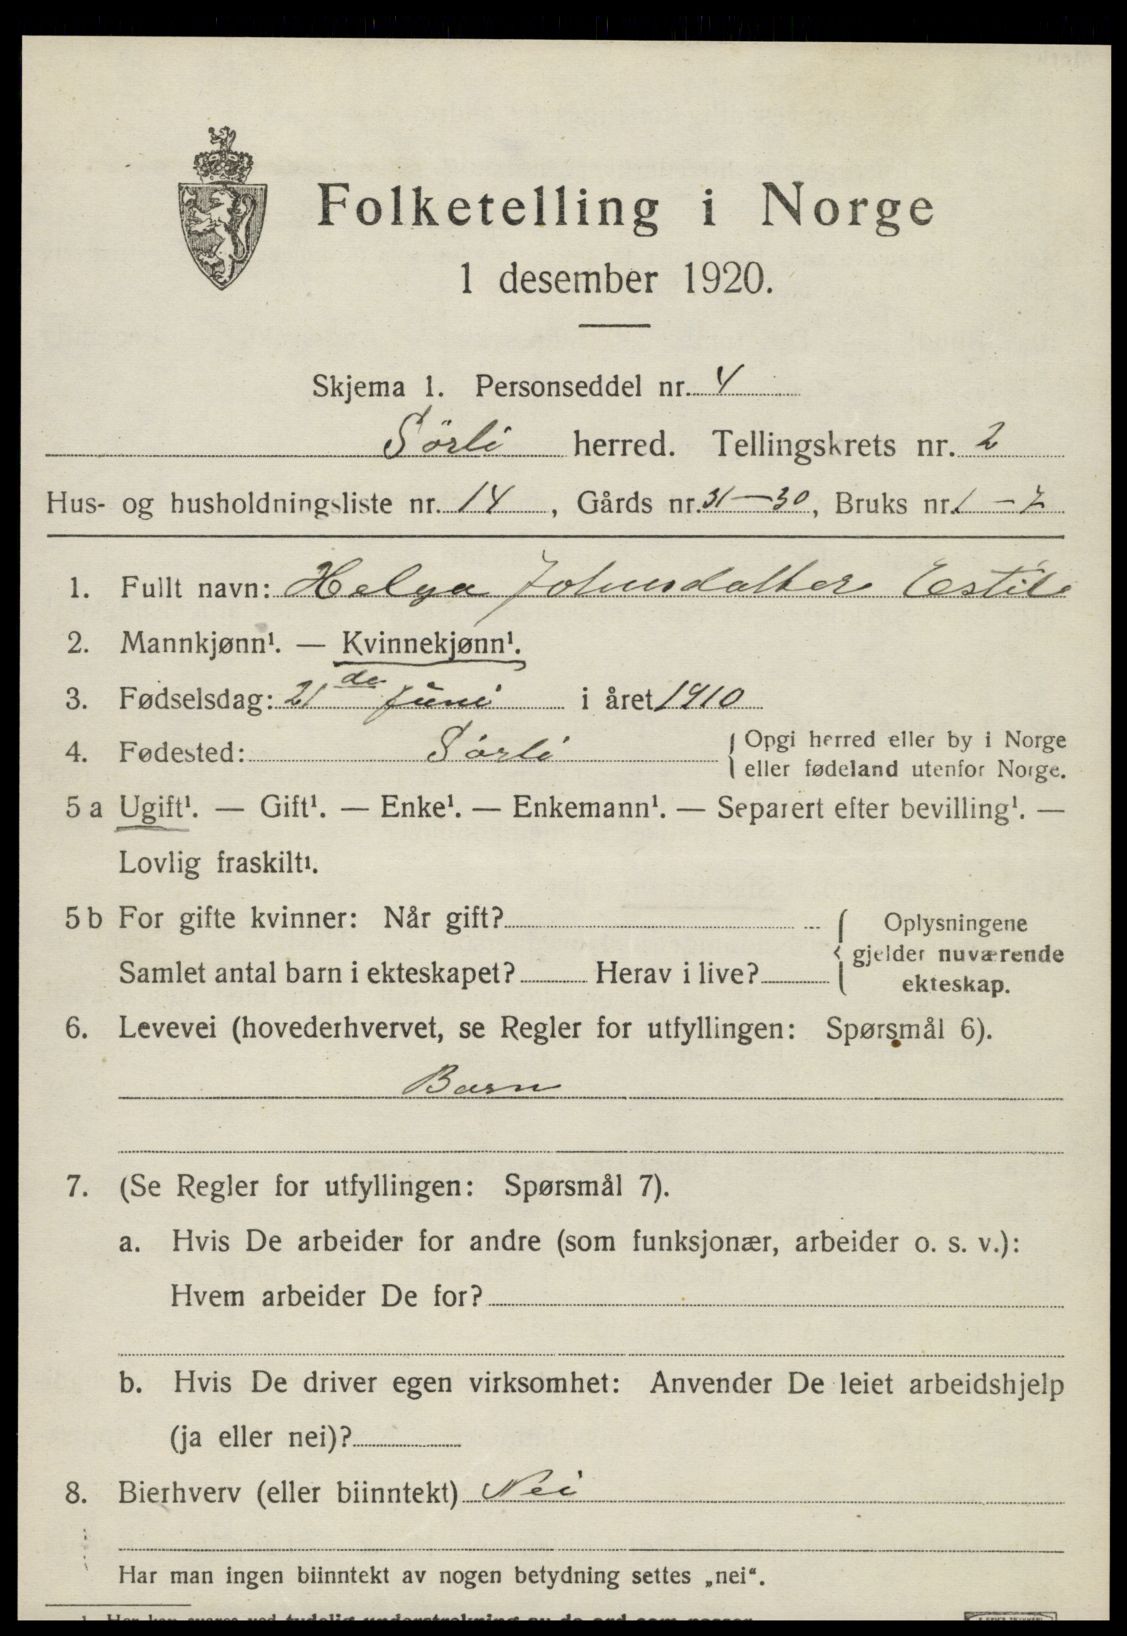 Folketelling i Norge
1 desember 1920.
Skjema 1. Personseddel nr. 4
Sörli herred. Tellingskrets nr. 2
Hus- og husholdningsliste nr. 14, Gårds nr. 31—30, Bruks nr. 1 — 7
1. Fullt navn: Helga Johnsdatter Estil
2. Mannkjønn¹. — Kvinnekjønn¹.
3. Fødselsdag: 21de Juni i året 1910
4. Fødested: Sörli { Opgi herred eller by i Norge
eller fødeland utenfor Norge.
5 a Ugift¹. — Gift¹. — Enke¹. — Enkemann¹. — Separert efter bevilling¹. —
Lovlig fraskilt¹.
5 b For gifte kvinner: Når gift? { Oplysningene
gjelder nuværende
Samlet antal barn i ekteskapet? Herav i live?
ekteskap.
6. Levevei (hovederhvervet, se Regler for utfyllingen: Spørsmål 6).
Barn
7. (Se Regler for utfyllingen: Spørsmål 7).
a. Hvis De arbeider for andre (som funksjonær, arbeider o. s. v.):
Hvem arbeider De for?
b. Hvis De driver egen virksomhet: Anvender De leiet arbeidshjelp
(ja eller nei)?
8. Bierhverv (eller biinntekt) Nei
Har man ingen biinntekt av nogen betydning settes „nei“.